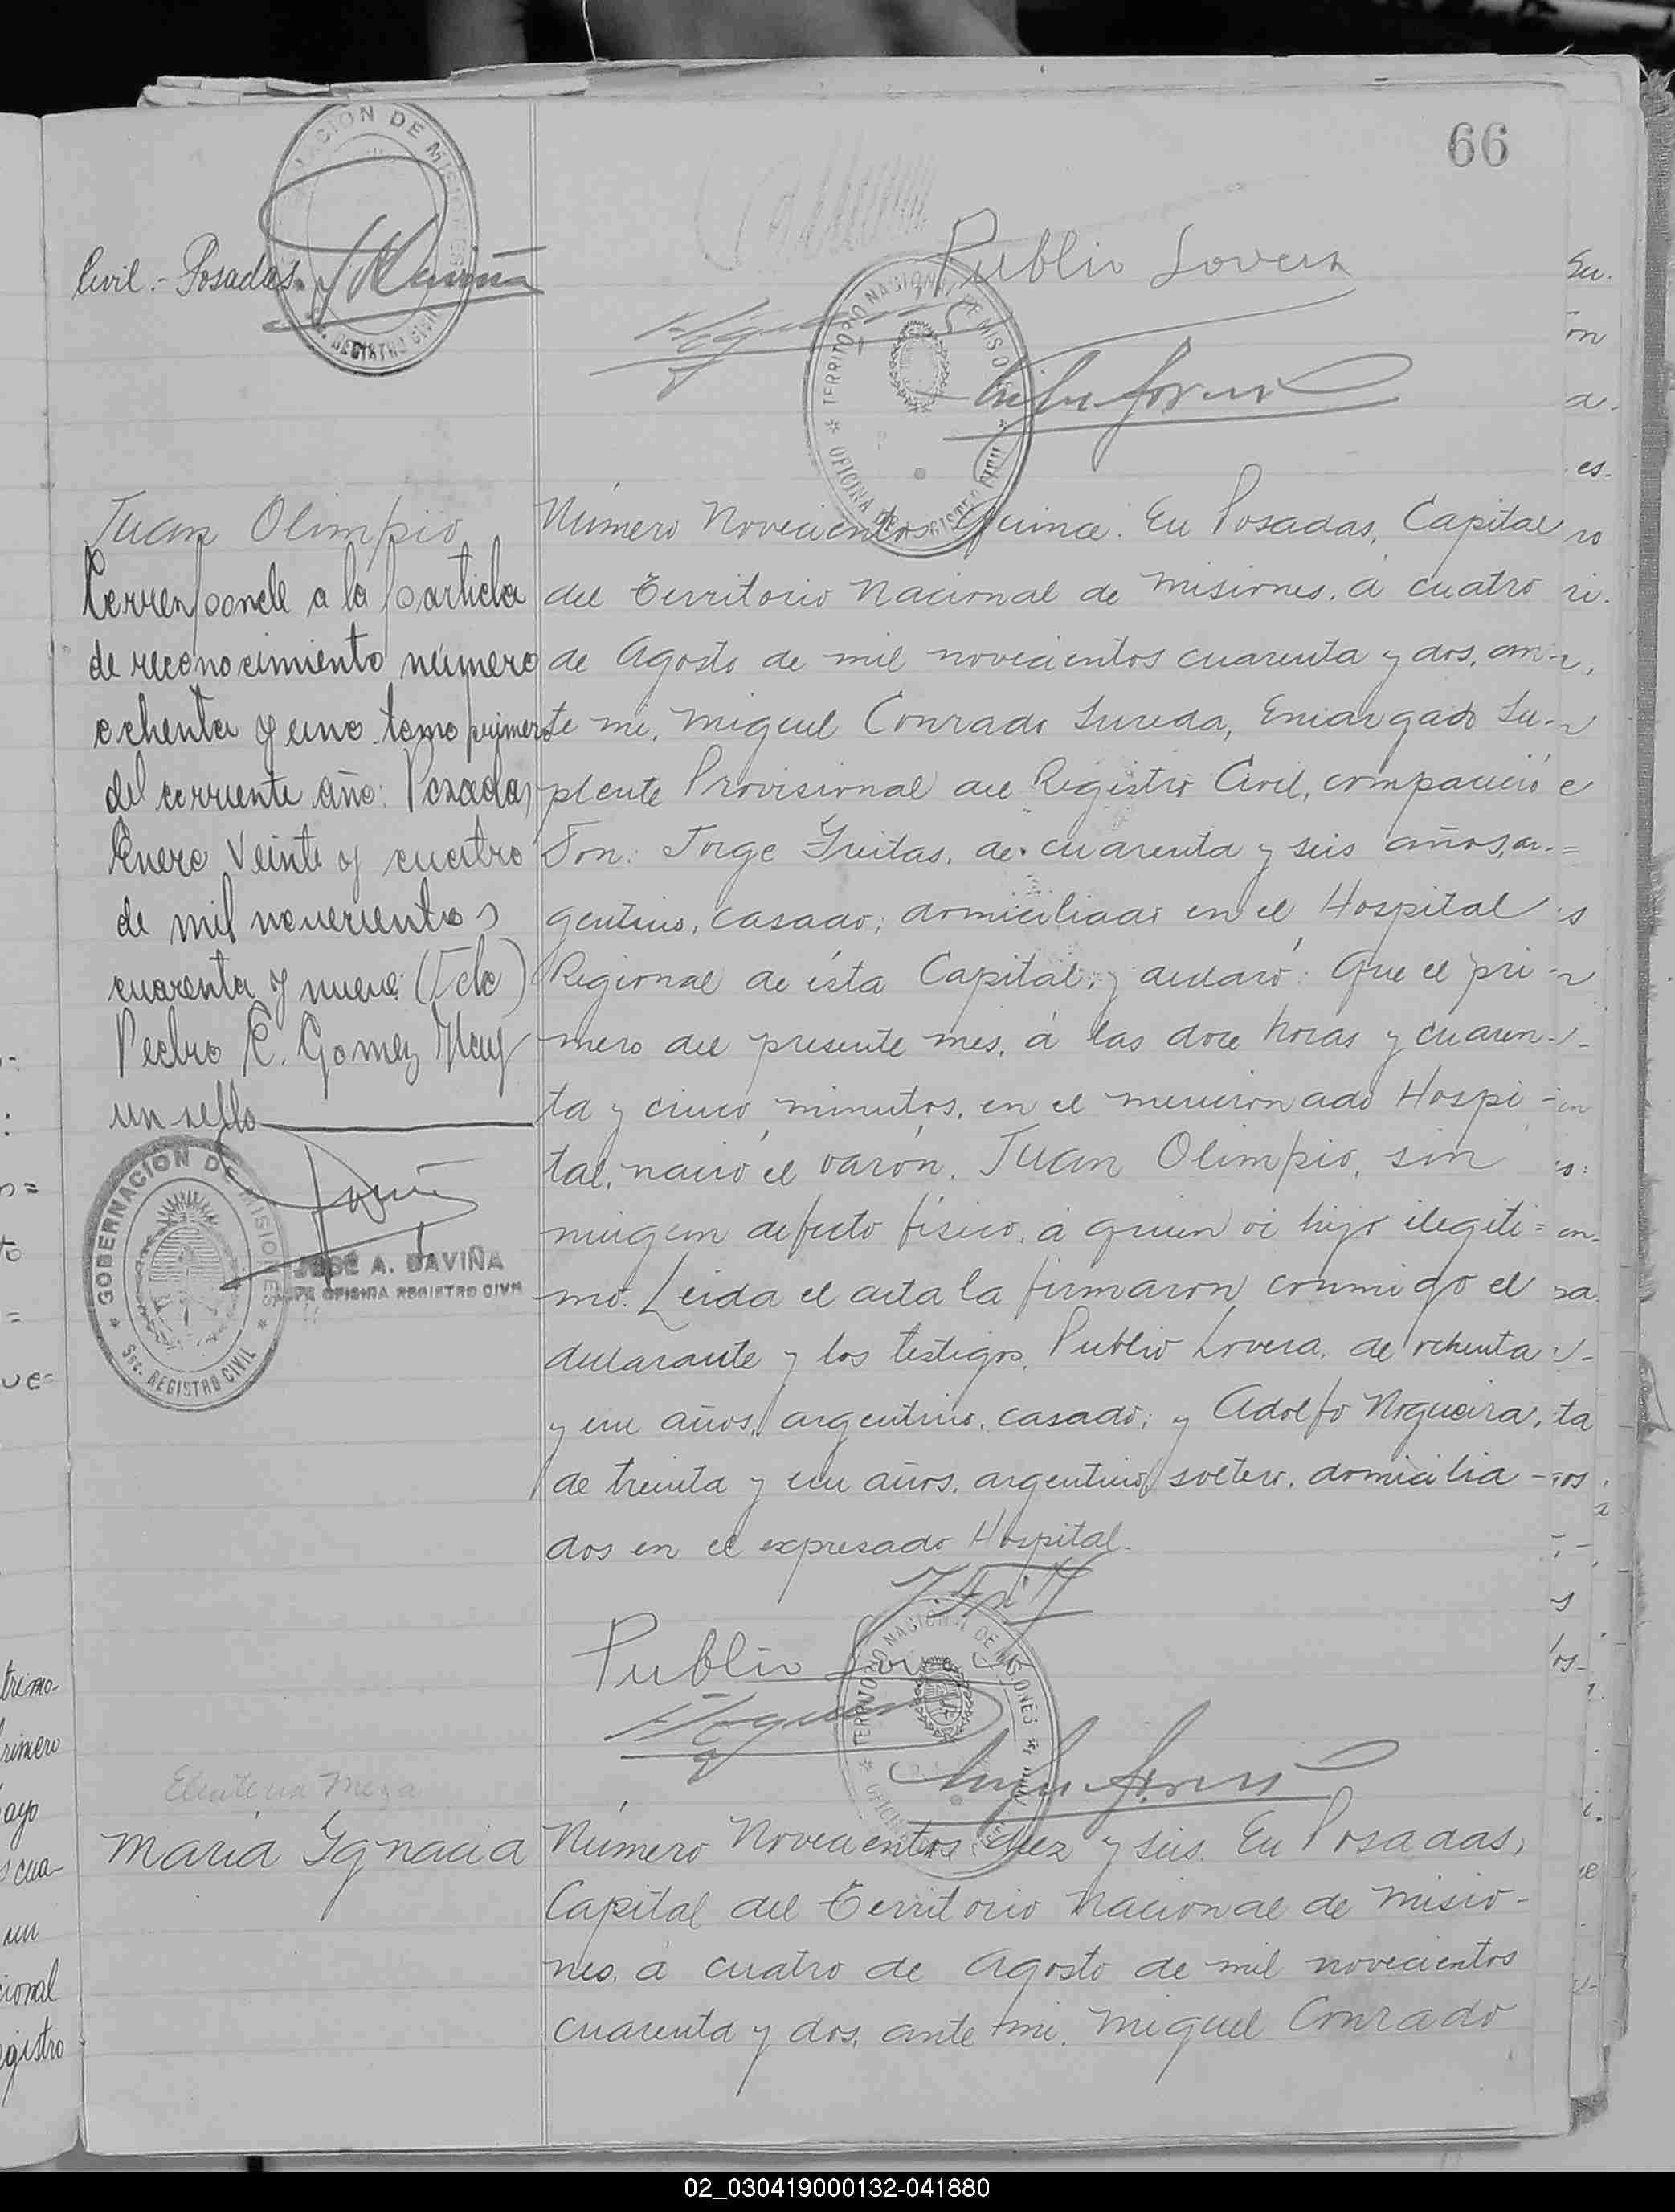 66
Civil.- Posadas.
Publio Lovera
TERRITORIO NACIONAL DE MISIONES
OFICINA DE REGISTRO CIVIL
REGISTRO CIVIL
Juan Olimpio
Corresponde a la partida
de reconocimiento número
ochenta y uno tomo primero
del corriente año: Posadas
Enero Veinte y cuatro
de mil novecientos
cuarenta y nueve: (Fdo)
Pedro E. Gomez
un sello
GOBERNACION DE MISIONES
Sec. REGISTRO CIVIL
JOSÉ A. DAVIÑA
JEFE OFICINA REGISTRO CIVIL
Número Novecientos Quince. En Posadas, Capital
del Territorio Nacional de Misiones, á cuatro
de Agosto de mil novecientos cuarenta y dos, an-
te mi, Miguel Conrado Sureda, Encargado Su-
plente Provisional del Registro Civil, compareció
Don: Jorge Freitas, de cuarenta y seis años, ar-
gentino, casado; domiciliado en el Hospital
Regional de ésta Capital; y declaró: Que el pri-
mero del presente mes, á las doce horas y cuaren-
ta y cinco minutos, en el mencionado Hospi-
tal, nació el varón, Juan Olimpio, sin
ningun defecto físico, á quien ví hijo ilegíti=
mo. Leida el acta la firmaron conmigo el
declarante y los testigos, Publio Lovera, de ochenta
y un años, argentino, casado; y Adolfo Nogueira,
de treinta y un años, argentino, soltero, domicilia-
dos en el expresado Hospital.
Publio Lovera
TERRITORIO NACIONAL DE MISIONES
Eleuteria Meza
María Ygnacia
Número Novecientos diez y seis. En Posadas,
Capital del Territorio Nacional de Misio-
nes, á cuatro de Agosto de mil novecientos
cuarenta y dos, ante mi, Miguel Conrado
02_030419000132-041880